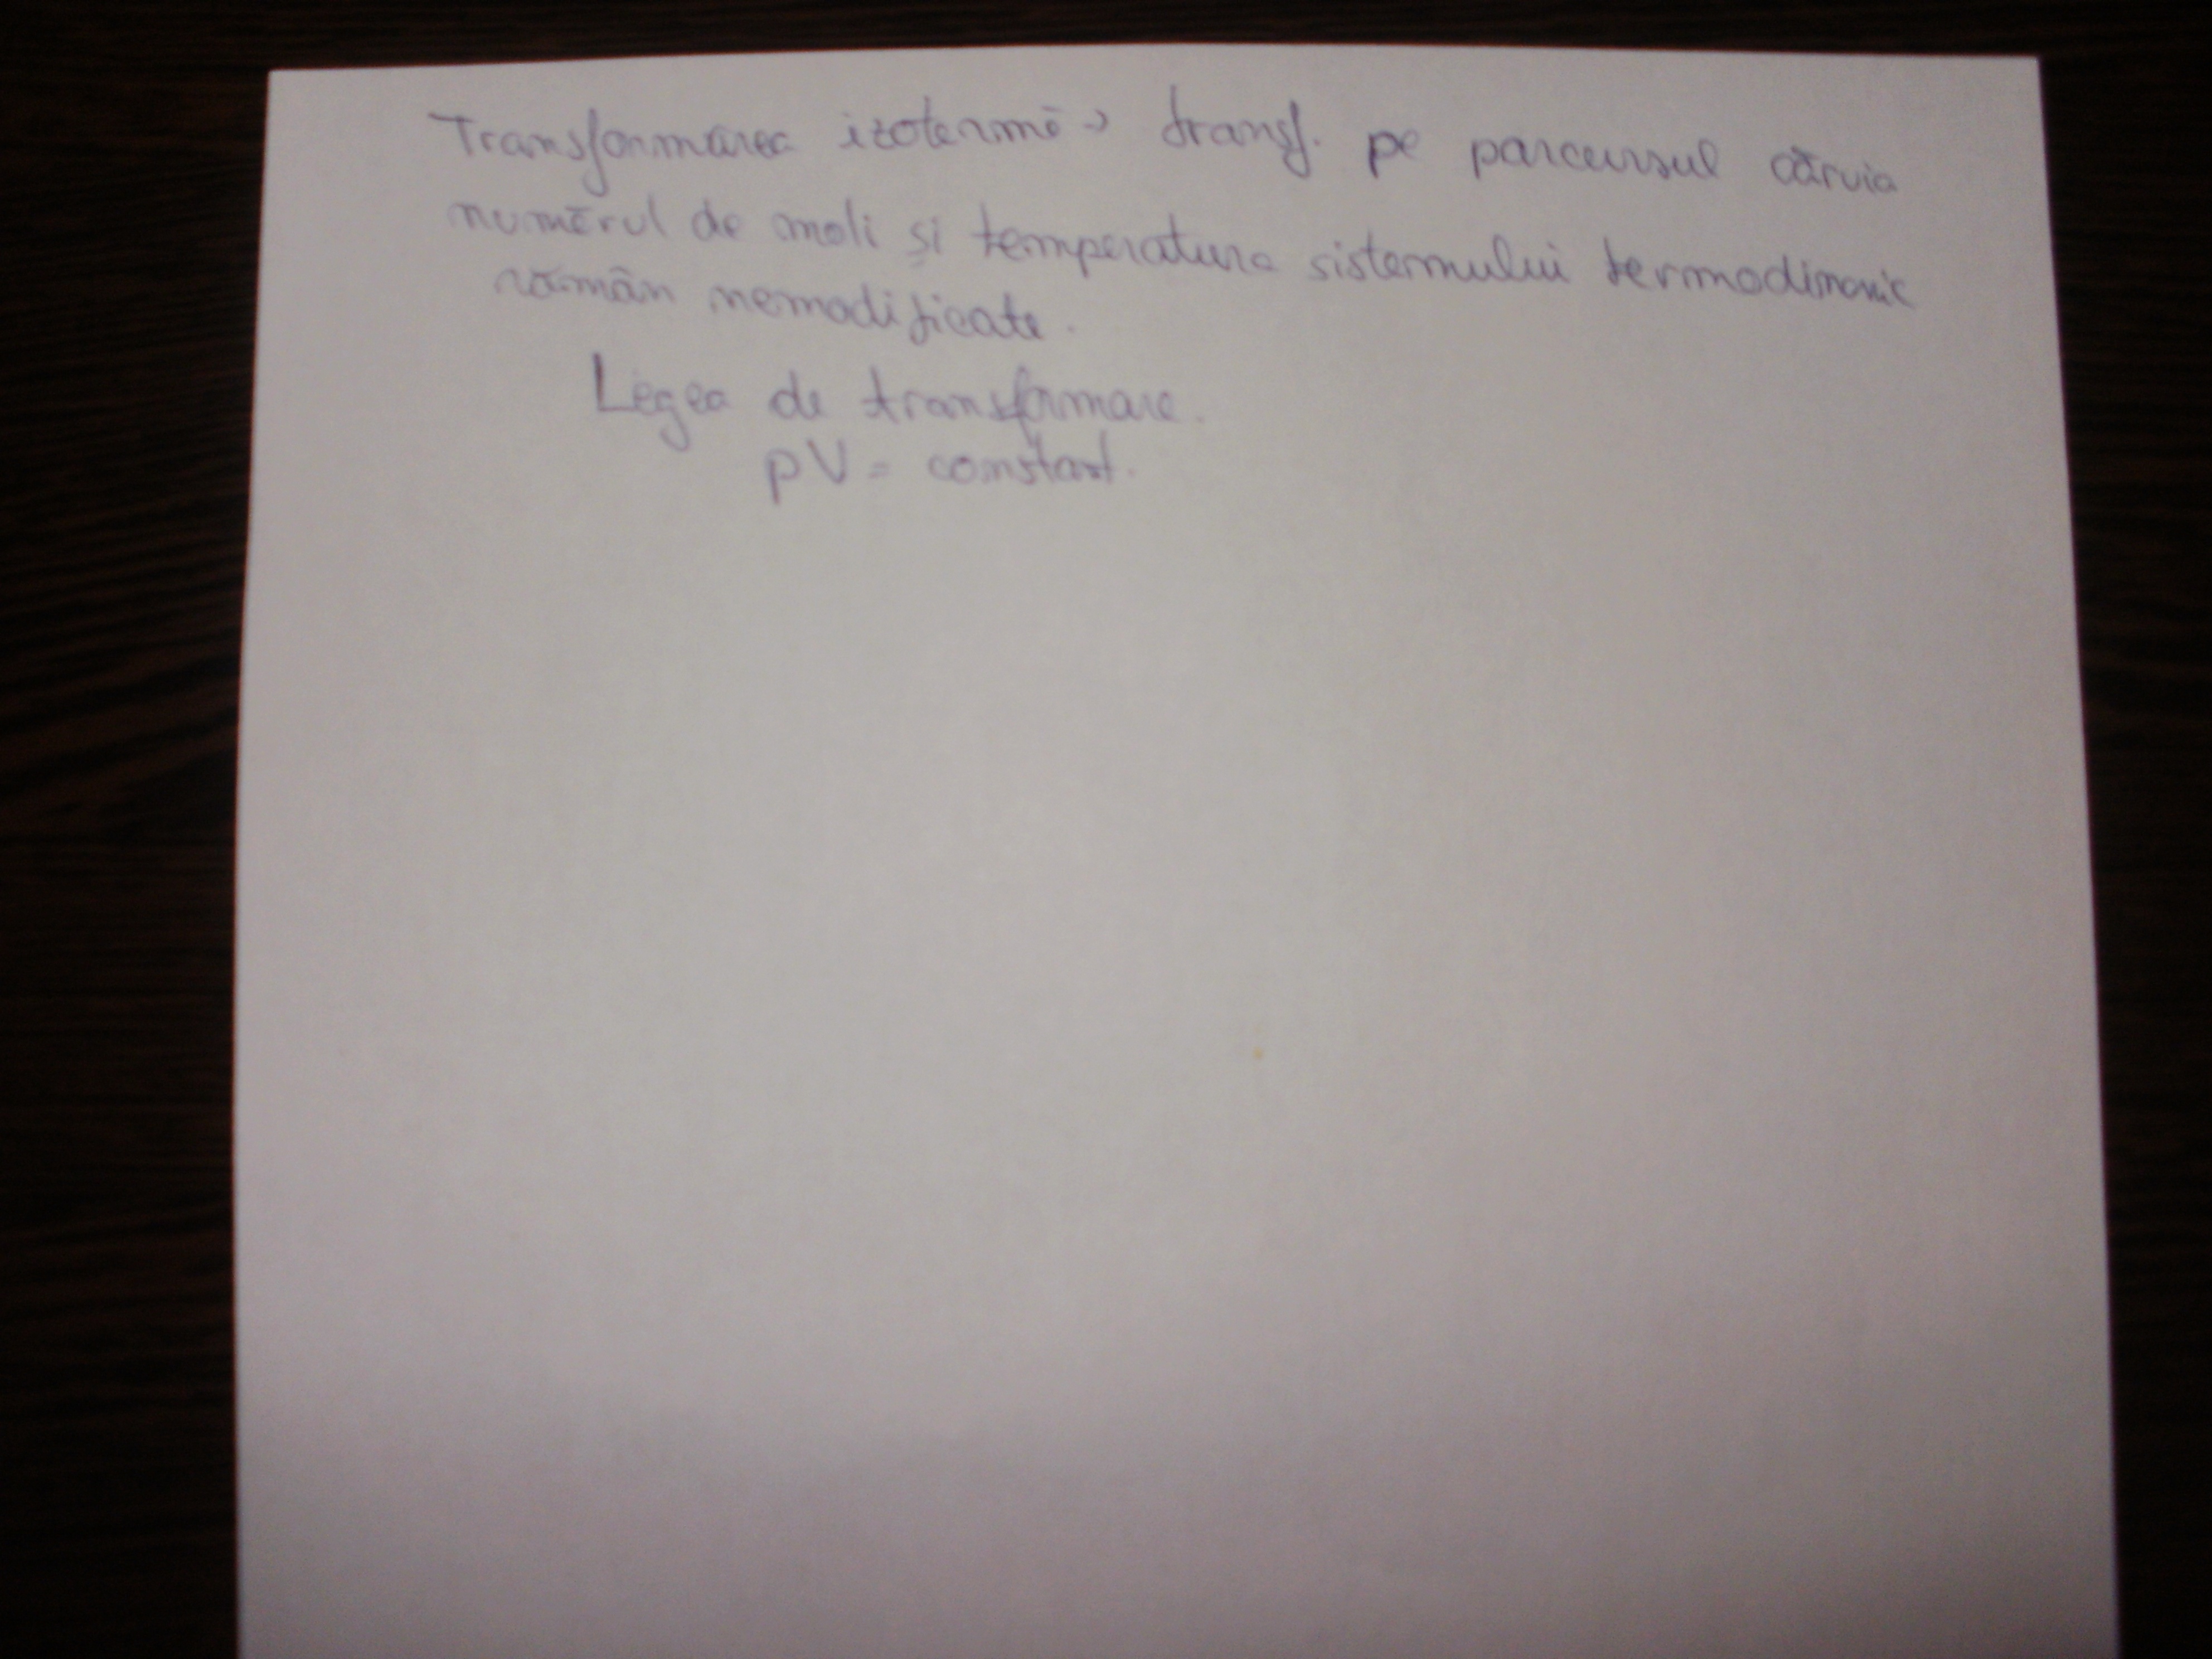 Transformarea izotermă → transf. pe parcursul căruia
numărul de moli și temperatura sistemului termodinamic
rămân nemodificate.
Legea de transformare.
pV = constant.